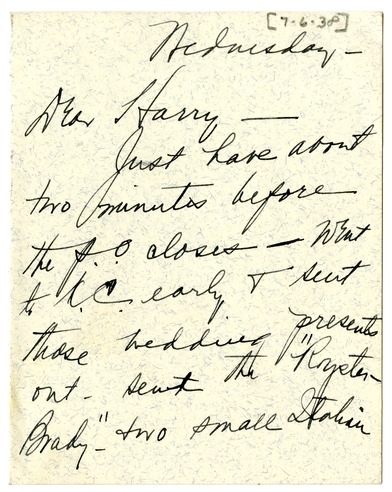 [7-6-38]
Wednesday -
Dear Harry -
Just have about
two minutes before
the P.O closes - Went
to K.C. early & sent
those wedding presents
out - sent the "Royster-
Brady" - two small Italian